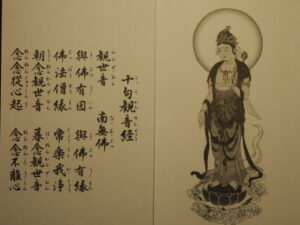 十句観音経
観世音　南無佛
與佛有因　與佛有縁
佛法僧縁　常楽我浄
朝念観世音　暮念観世音
念念從心起　念念不離心